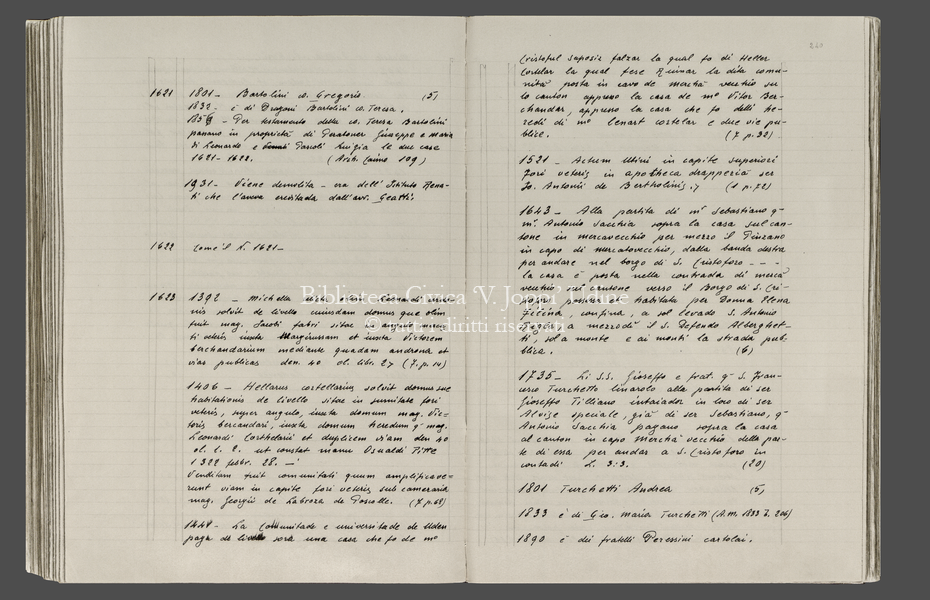 1621 1801 – Bartolini co. Gregorio (5)
1832 – è di Dragoni Bartolini co. Teresa.
Per testamento della co. Teresa Bartolini
passano in proprietà di Giuseppe e Maria
di Leonardo e Luigia le due case
1621-1622. (Arch. Caimo 109)
1931 – Viene demolita – era dell'Istituto Rena-
ti che l'aveva ereditata dall'avv. Geatti.
1622 come il N. 1621 –
1623 1392 – Michella
nis solvit de livello cuiusdam domus que olim
fuit mag. Jacobi fabri sitae
ti veteris iuxta et iuxta Victorem
berchandarium mediante quadam androna et
vias publicas den. 40 ol. libr. 27 (7. p. 14)
1406 – Hellarus cortellarius solvit domus sue
habitationis de livello sitae in sumitate fori
veteris, super angulo, iuxta domum mag. Vic-
toris bercandari, iuxta domum heredum q. mag.
Leonardi Corthelarii et duplicem viam den. 40
ol. l. 2. ut constat manu Osualdi
1322 febbr. 28. –
Venditam fuit comunitati quum amplificave-
runt viam in capite fori veteris sub cameraria
mag. Georgii de de (7 p. 68)
1449 – La Comunitade e universitade de Uden
paga de livello sora una casa che fo de mo
260
Cristoful falzar la qual fo di Heller
cortelar la qual fese Ruinar la dita comu-
nità posta in cavo de merchà vechio su
lo canton appreso la casa de mo Vitor Ber-
chandar, appreso la casa che fo delli he-
redi di mo Lenart cortelar e due vie pu-
blice. (7 p. 32)
1521 – Actum Utini in capite superiori
fori veteris in apotheca drapperia ser
Jo. Antonii de Bertholinis. (1 p. 72)
1643 – Alla partita di mr Sebastiano q.
mr. Antonio Sacchia sopra la casa sul can-
tone in mercavecchio per mezzo il Pinzano
in capo di mercatovecchio, dalla banda destra
per andare nel borgo di S. Cristoforo – – –
la casa è posta nella contrada di mercà
vechio sul cantone verso il Borgo di S. Cri-
stoforo habitata per Donna Elena
confina, a sol levado S. Antonio
mezzodì il S. Defendo Alberghet-
ti, sol a monte e ai monti la strada pub-
blica. (6)
1735 – Li S.S. Gioseffo e frat. q. S. Fran-
cesco Turchetto linarolo alla partita di ser
Gioseffo Tilliano intaiador in loco di ser
Alvise speciale, già di ser Sebastiano, q.
Antonio Sacchia pagano sopra la casa
al canton in capo Merchà vechio della par-
te di essa per andar a S. Cristoforo in
contadi L. 3:3. (20)
1801 Turchetti Andrea (5)
1833 è di Gio. Maria Turchetti (A.M. 1833 I. 206)
1890 è dei fratelli Peressini cartolai.
Biblioteca Civica "V. Joppi" Udine
© tutti i diritti riservati